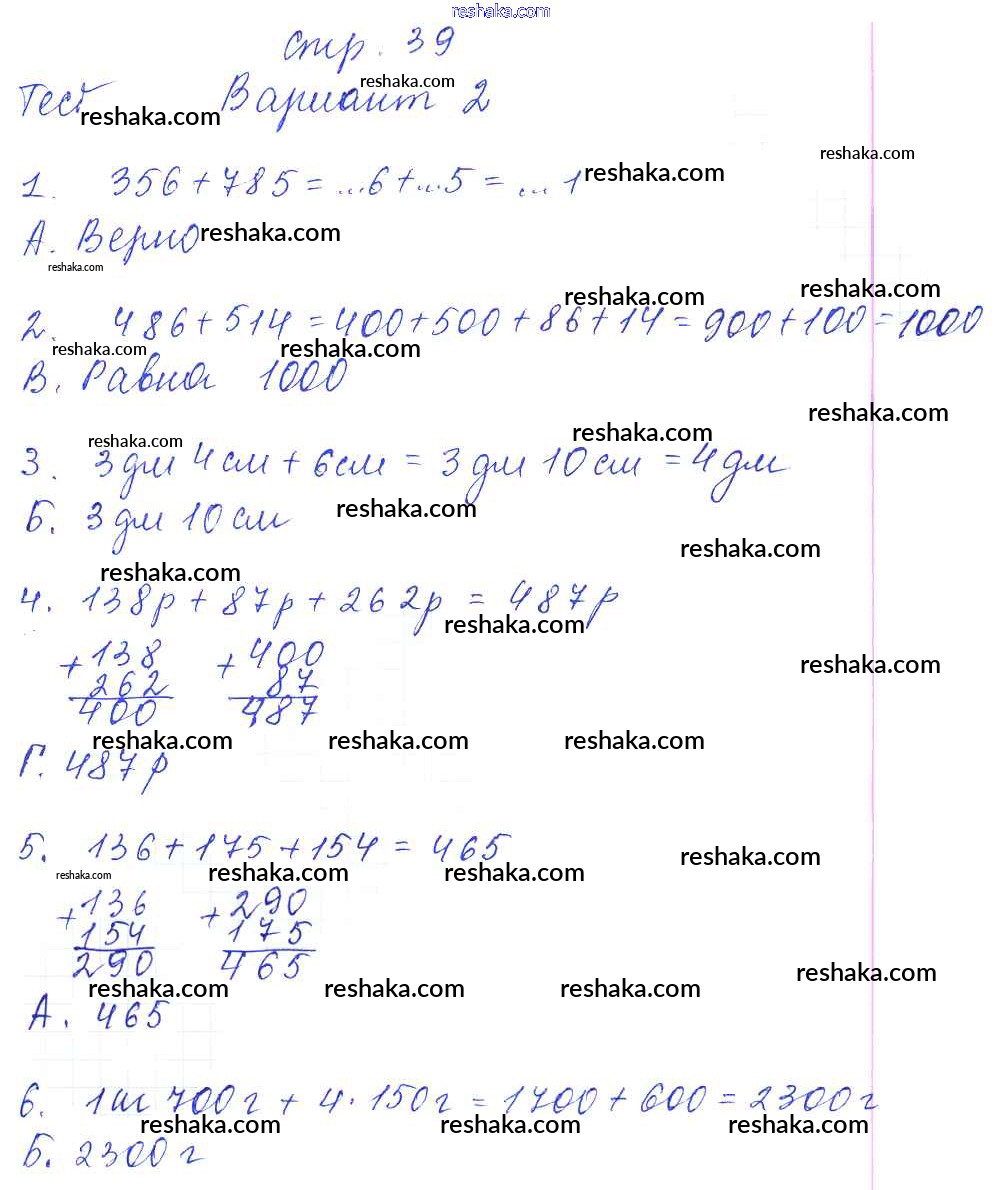 reshaka.com
стр. 39
reshaka.com
Тест Вариант 2
reshaka.com
reshaka.com
1. 356 + 785 = ...6 + ...5 = ... 1
reshaka.com
А. Верно
reshaka.com
reshaka.com
reshaka.com
reshaka.com
2. 486 + 514 = 400 + 500 + 86 + 14 = 900 + 100 = 1000
reshaka.com
reshaka.com
В. Равна 1000
reshaka.com
reshaka.com
reshaka.com
3. 3 дм 4 см + 6 см = 3 дм 10 см = 4 дм
Б. 3 дм 10 см
reshaka.com
reshaka.com
reshaka.com
4. 138 р + 87 р + 262 р = 487 р
reshaka.com
+ 138 + 400
262 87
400 487
reshaka.com
reshaka.com reshaka.com reshaka.com
Г. 487 р
5. 136 + 175 + 154 = 465
reshaka.com
reshaka.com reshaka.com reshaka.com
+ 136 + 290
154 175
290 465
reshaka.com
reshaka.com reshaka.com reshaka.com
А. 465
6. 1 кг 700 г + 4 · 150 г = 1700 + 600 = 2300 г
reshaka.com reshaka.com reshaka.com
Б. 2300 г